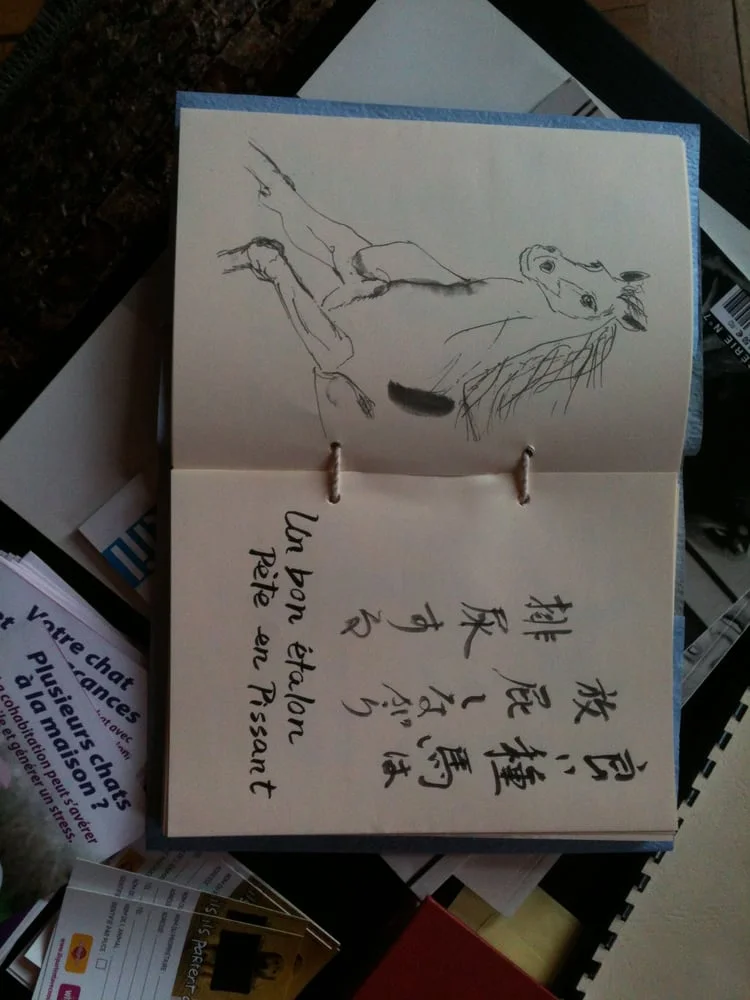 良い種馬は
放屁しながら
排尿する
Un bon étalon
Pète en Pissant
Votre chat
Plusieurs chats
à la maison ?
cohabitation peut s'avérer
et générer un stress.